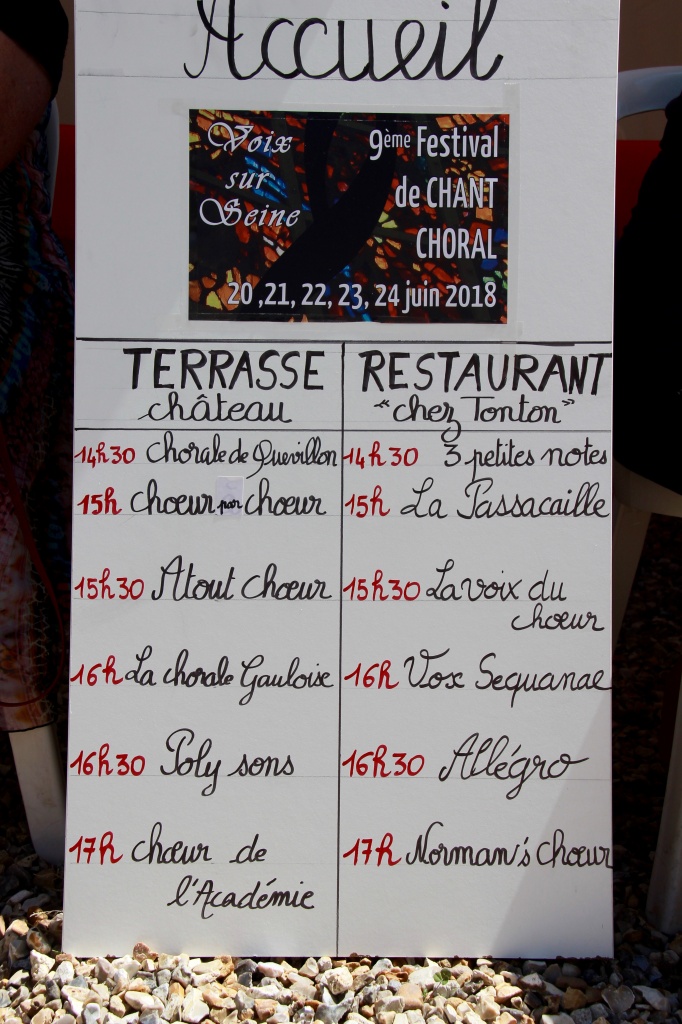 Accueil
Voix
sur
Seine
9ème Festival
de CHANT
CHORAL
20 ,21, 22, 23, 24 juin 2018
TERRASSE
château
14h30 Chorale de Quevillon
15h Choeur par choeur
15h30 Atout Choeur
16h La chorale Gauloise
16h30 Poly sons
17h chœur de
l'Académie
RESTAURANT
"chez Tonton"
14h30 3 petites notes
15h La Passacaille
15h30 La voix du
chœur
16h Vox Sequanae
16h30 Allégro
17h Norman's Choeur